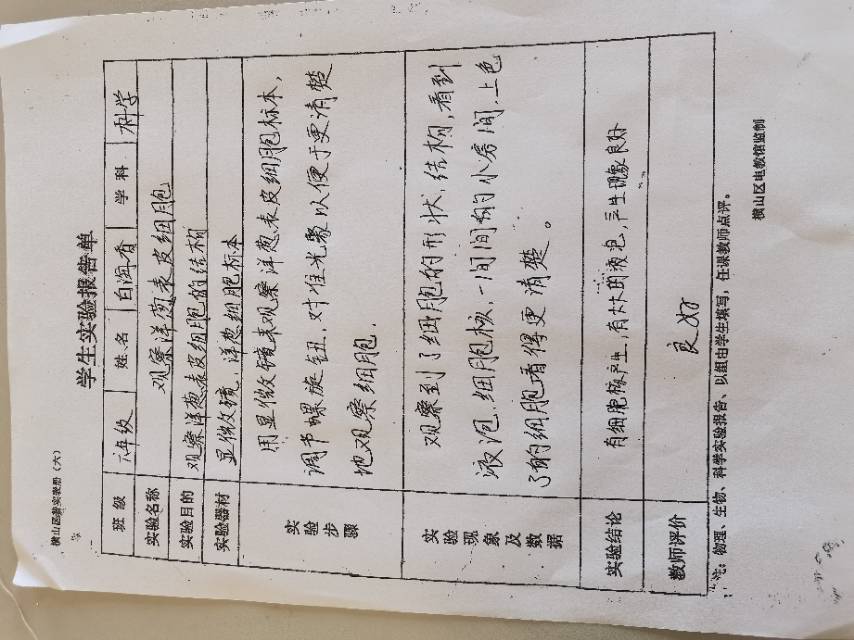 横山区普实表册（六）
学生实验报告单
班级 六年级 姓名 白海香 学科 科学
实验名称 观察洋葱表皮细胞
实验目的 观察洋葱表皮细胞的结构
实验器材 显微镜，洋葱细胞标本
实验步骤
用显微镜来观察洋葱表皮细胞标本，
调节螺旋钮，对准光象以便于更清楚
地观察细胞．
实验现象及数据
观察到了细胞的形状，结构，看到
液泡，细胞核，一间间的小房间，上色
了的细胞看得更清楚。
实验结论 有细胞核产生，有大大的液泡，产生现象良好
教师评价 良好
注：物理、生物、科学实验报告、以组由学生填写，任课教师点评。
横山区电教馆监制